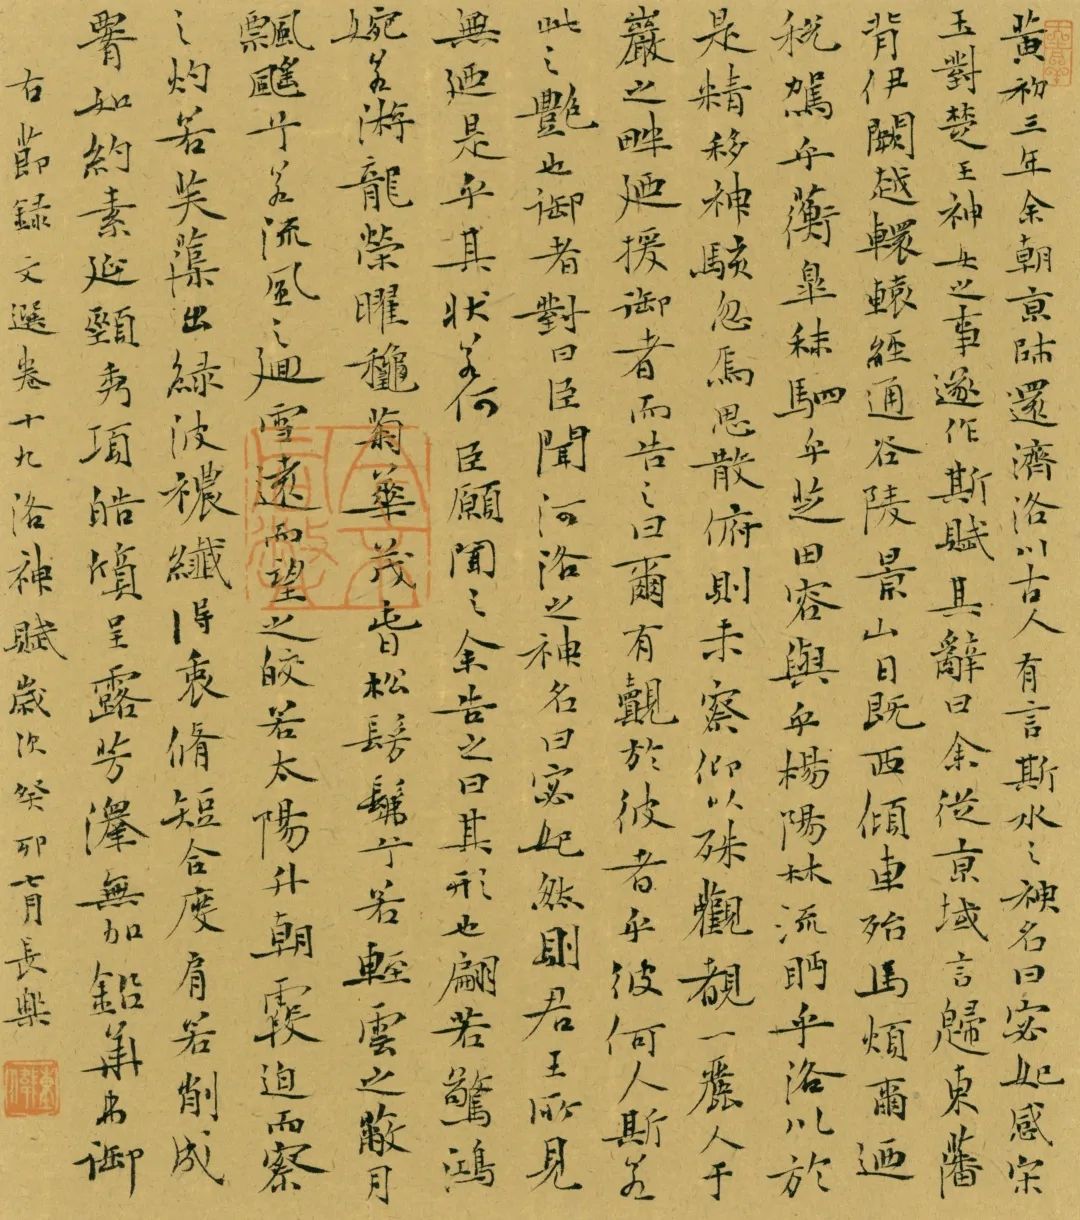 黃初三年余朝京師還濟洛川古人有言斯水之神名曰宓妃感宋
玉對楚王神女之事遂作斯賦其辭曰余從京域言歸東藩
背伊闕越轘轅經通谷陵景山日既西傾車殆馬煩爾迺
稅駕乎蘅皋秣駟乎芝田容與乎楊陽林流眄乎洛川於
是精移神駭忽焉思散俯則未察仰以殊觀覩一麗人于
巖之畔迺援御者而告之曰爾有覿於彼者乎彼何人斯若
此之艷也御者對曰臣聞河洛之神名曰宓妃然則君王所見
無迺是乎其狀若何臣願聞之余告之曰其形也翩若驚鴻
婉若游龍榮曜秋菊華茂春松髣髴兮若輕雲之蔽月
飄颻兮若流風之迴雪遠而望之皎若太陽升朝霞迫而察
之灼若芙蕖出綠波襛纖得衷脩短合度肩若削成
署如約素延頸秀項皓質呈露芳澤無加鉛華弗御
右節録文選卷十九洛神賦歲次癸卯七月長樂